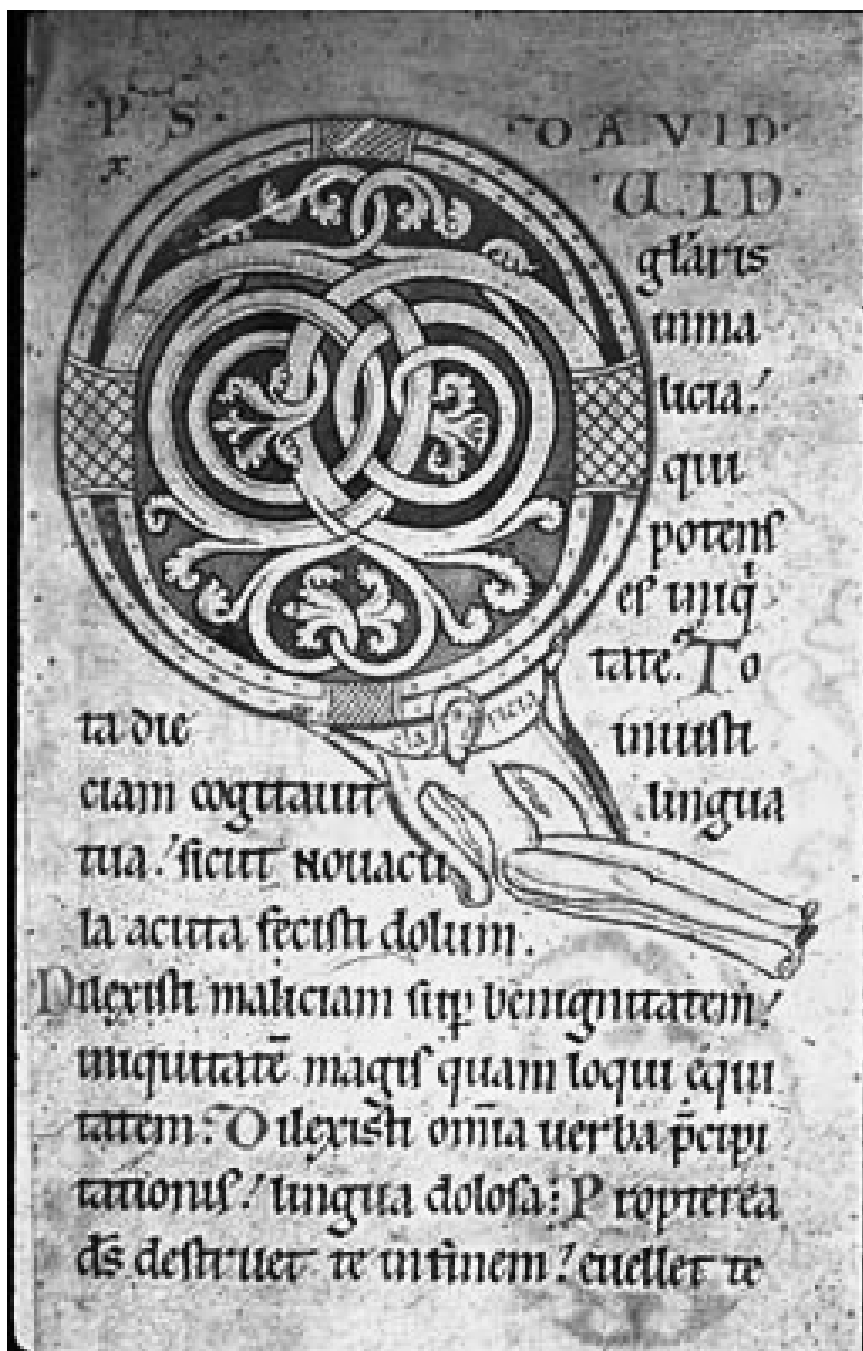 PS. DAVID.
QUID
gl̄aris
inma
licia!
qui
potens
es iniq͛
tate. To
ta die iniusti
ciam cogitauit lingua
tua! sicut nouacu
la acuta fecisti dolum.
Dilexisti maliciam sup̱ benignitatem!
iniquitatē magis quam loqui equi
tatem. Dilexisti om̄ia uerba p̄cipi
tationis! lingua dolosa: Propterea
d̄s destruet te infinem! euellet te